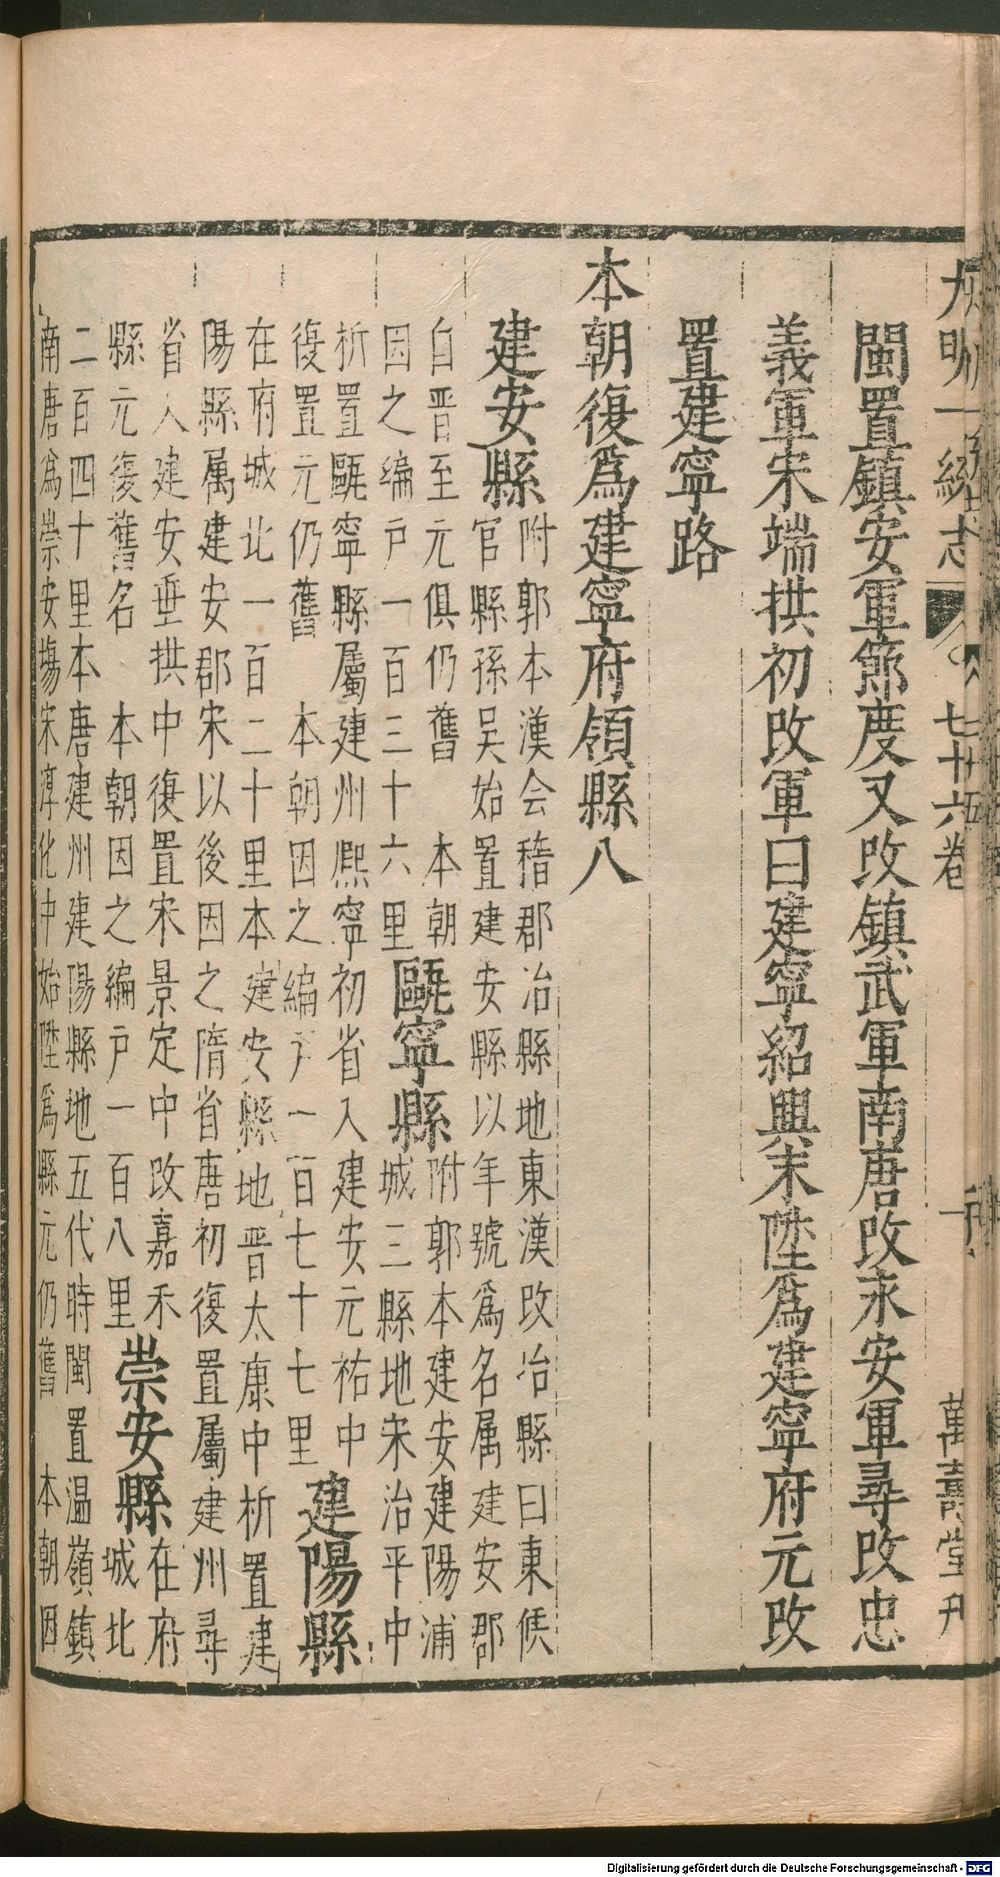 大明一統志 七十六卷 萬壽堂刊
閩置鎮安軍節度又改鎮武軍南唐改永安軍尋改忠
義軍宋端拱初改軍曰建寧紹興末陞爲建寧府元改
置建寧路
本朝復爲建寧府領縣八
建安縣
附郭本漢会稽郡冶縣地東漢改冶縣曰東侯
官縣孫吴始置建安縣以年號爲名属建安郡
自晋至元俱仍舊 本朝
因之編戸一百三十六里
甌寧縣
附郭本建安建陽浦
城三縣地宋治平中
析置甌寧縣屬建州熈寧初省入建安元祐中
復置元仍舊 本朝因之編戸一百七十七里
建陽縣
在府城北一百二十里本建安縣地晋太康中析置建
陽縣属建安郡宋以後因之隋省唐初復置屬建州尋
省入建安垂拱中復置宋景定中改嘉禾
縣元復舊名 本朝因之編戸一百八里
崇安縣
在府
城北
二百四十里本唐建州建陽縣地五代時閩置温嶺鎮
南唐爲崇安塲宋淳化中始陞爲縣元仍舊 本朝因
Digitalisierung gefördert durch die Deutsche Forschungsgemeinschaft - DFG